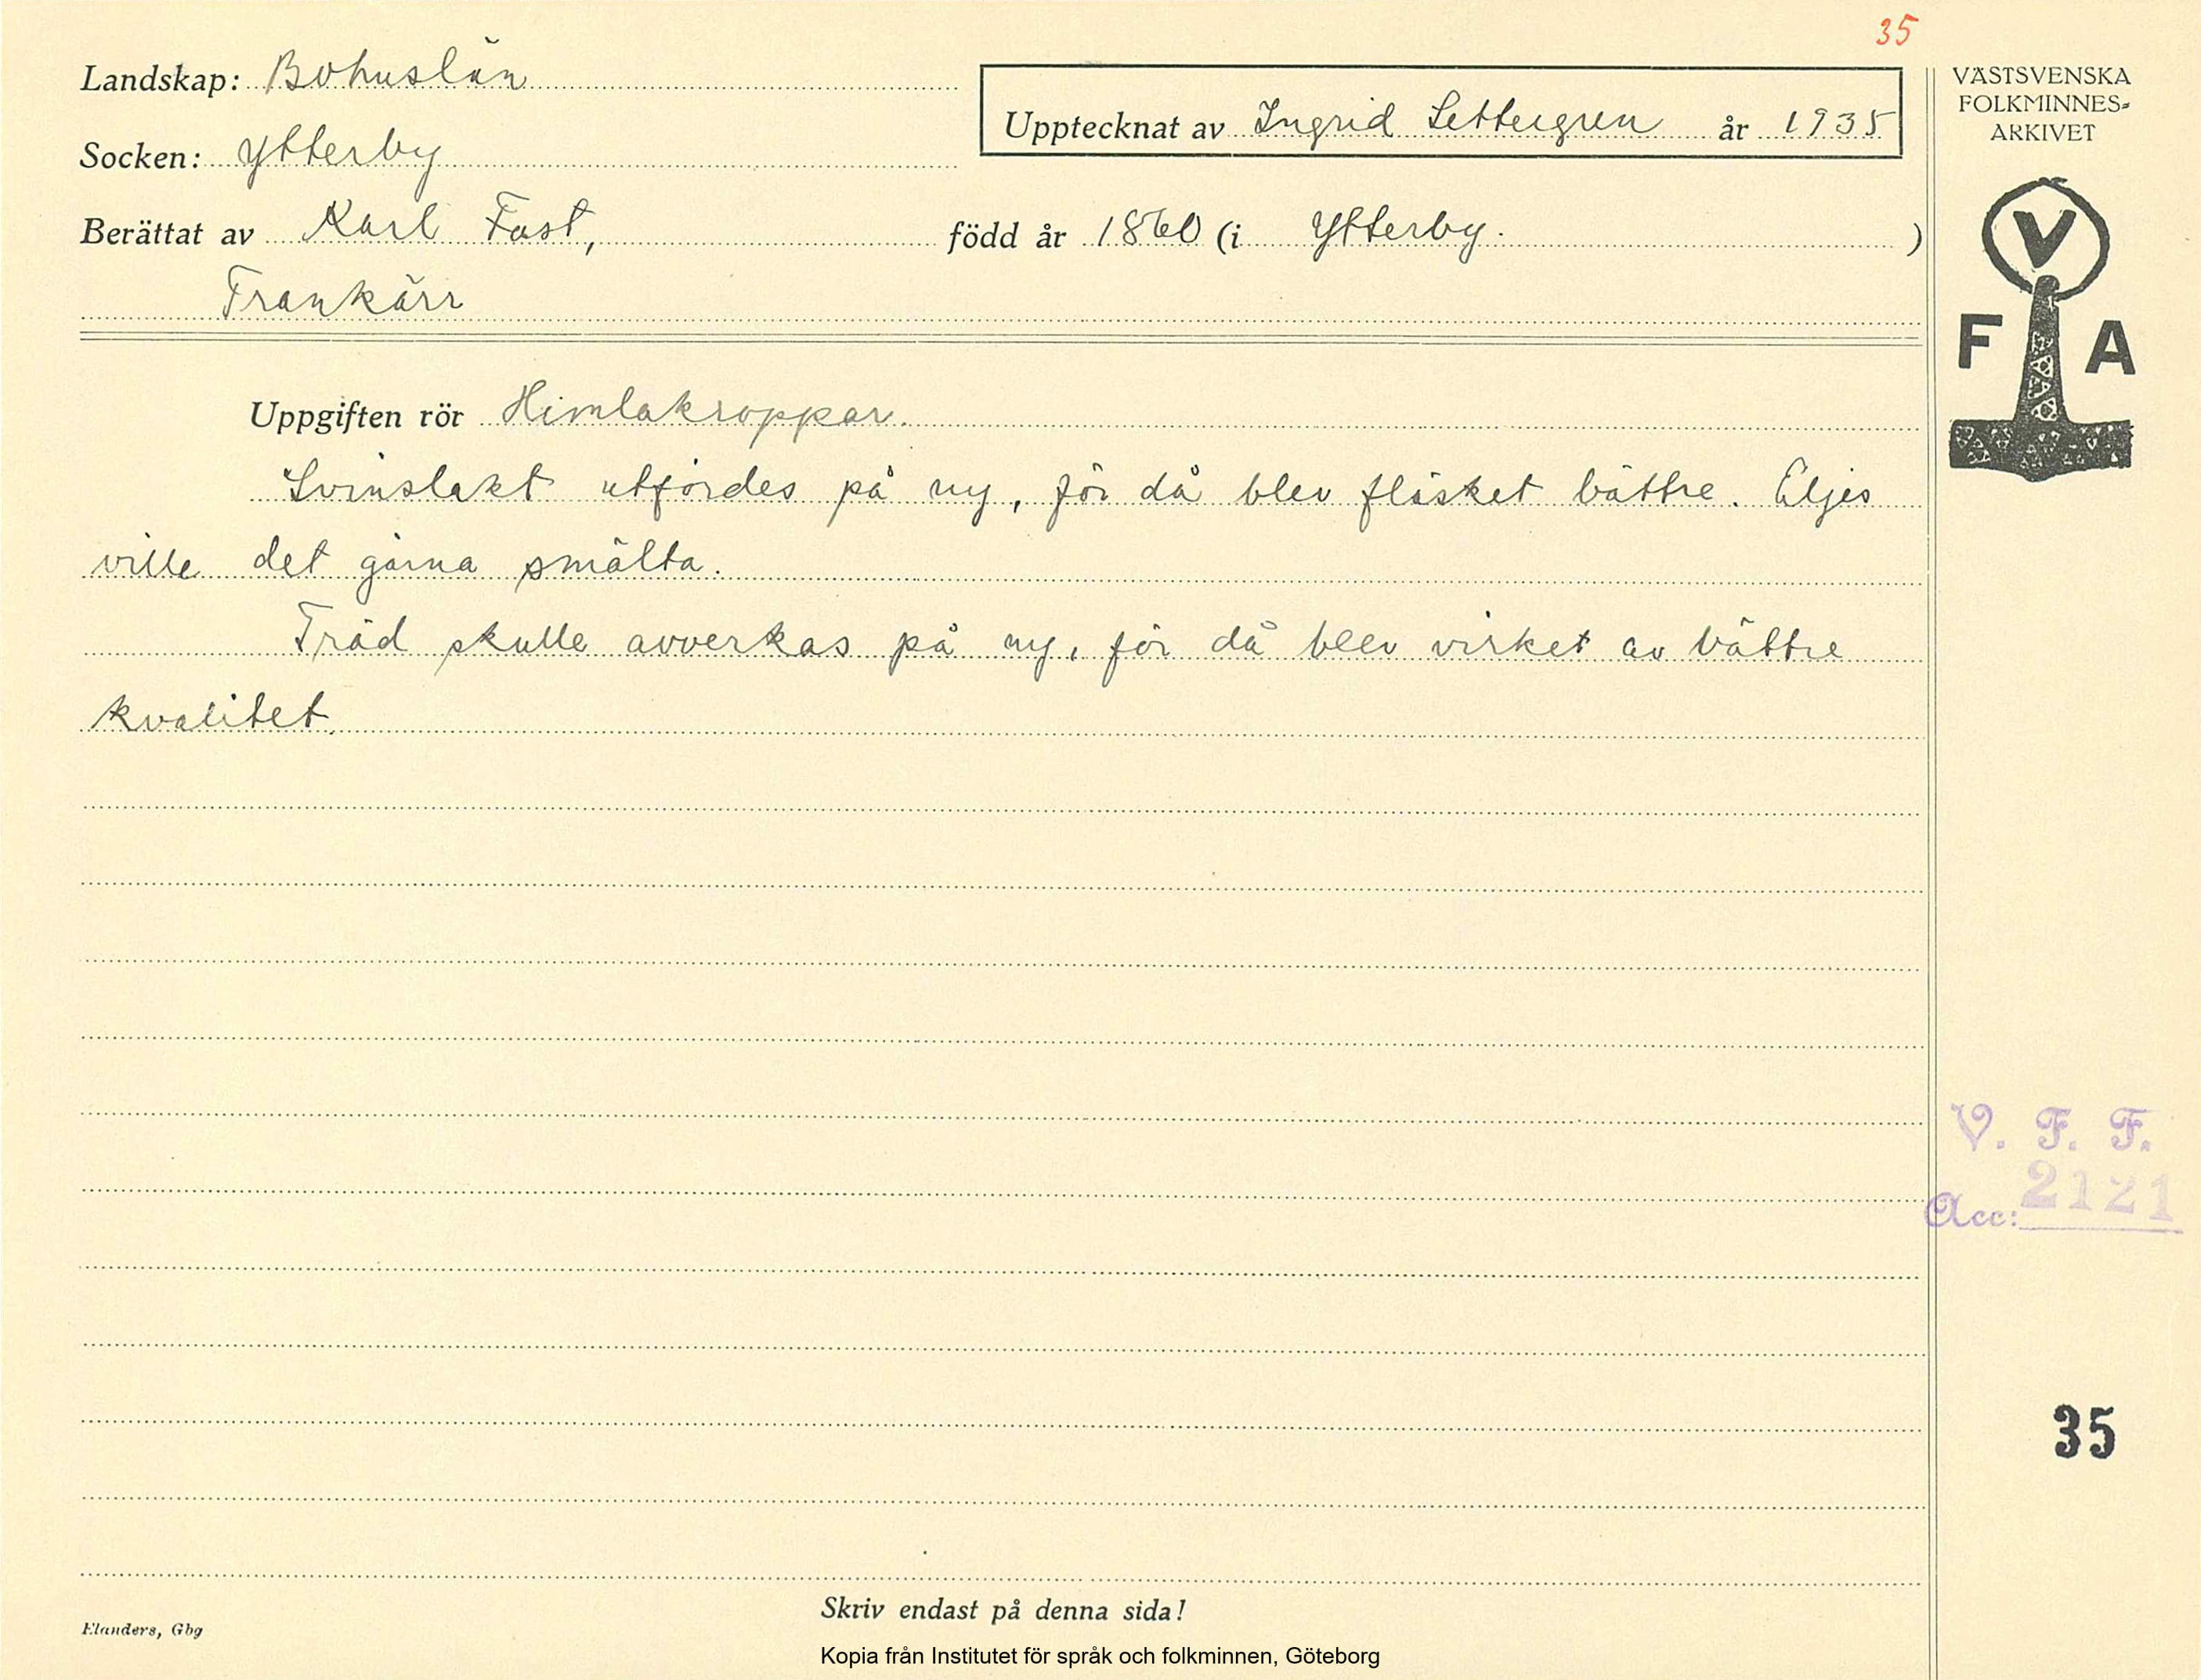 35
Landskap: Bohuslän
Upptecknat av Ingrid Settergren år 1935
Socken: Ytterby
Berättat av Karl Fast, född år 1860 (i Ytterby. )
Trankärr
VÄSTSVENSKA
FOLKMINNES-
ARKIVET
V
F A
Uppgiften rör Himlakroppar.
Svinslakt utfördes på ny, för då blev fläsket bättre. Eljes
ville det gärna smälta.
Träd skulle avverkas på ny, för då blev virket av bättre
kvalitet.
V. F. F.
Acc: 2121
35
Skriv endast på denna sida!
Elanders, Gbg
Kopia från Institutet för språk och folkminnen, Göteborg